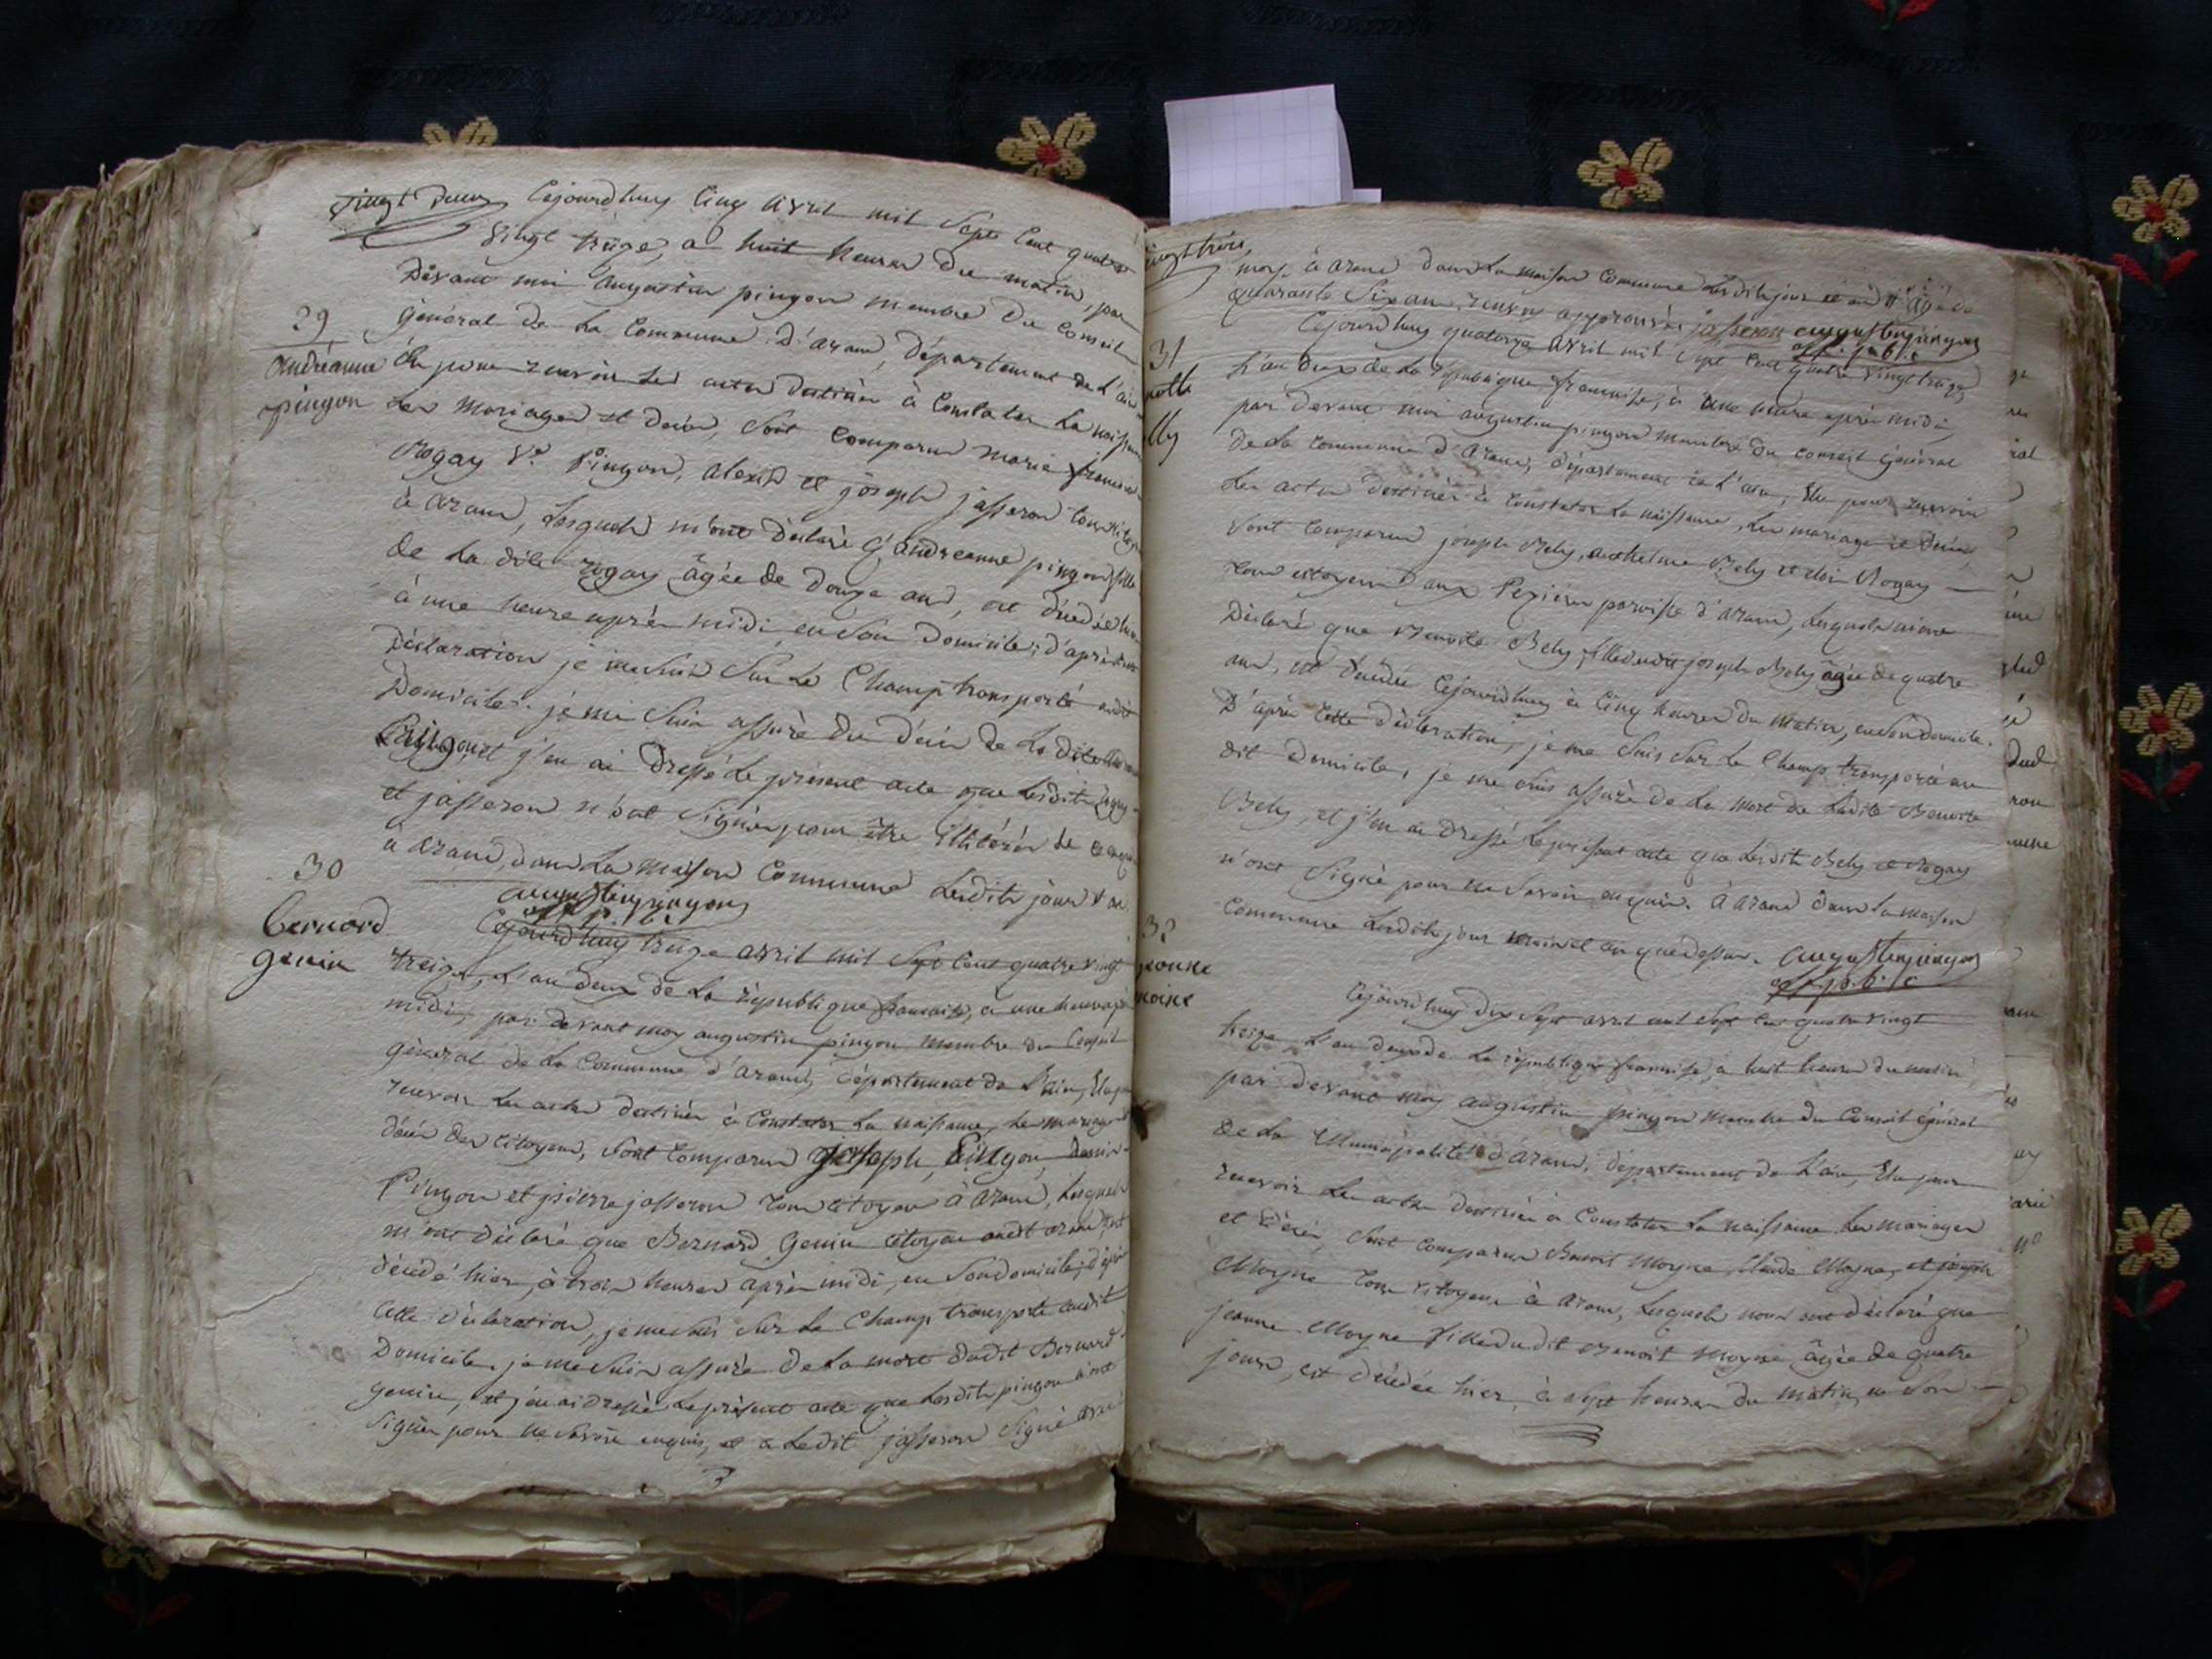 vingt deux
Cejourdhuy Cinq avril mil Sept Cent quatre
vingt treize, a huit heures du matin, par
Devant moi augustin pingon membre du Conseil
général de la Commune d'arane, département de L'ain
élu pour recevoir les actes destinés à Constater la naissance
Les mariages et décès, sont Comparus marie françoise
Rogay Ve Pingon, alexis et joseph jasseron tous citoyens
à arane, Lesquels m'ont déclaré q'andréanne pingon fille
de la dite rogay âgée de douze ans, est décédée hier
à une heure après midi, en son domicile; d'après cette
Déclaration je me suis sur le Champ transporté audit
Domicile. je me suis assuré du décès de la dite
Pingon, et j'en ai dressé le présent acte que lesdits
et jasseron n'ont signé, pour être illitérés de ce enquis
à arane, dans la maison Commune lesdits jour & an.
augustin pingon
off. p. b. c
29
andréanne
pingon
30
bernard
genin
Cejourdhuy treize avril mil Sept Cent quatre vingt
treize, L'an deux de la république francaise, à une heure après
midi, par devant moy augustin pingon membre du Conseil
général de la Commune d'arane, département de L'ain, Elu pour
recevoir les actes destinés à Constater la naissance, les mariages et
décès des citoyens, sont Comparus joseph Pingon,
Pingon et pierre jasseron tous citoyens à arane, lesquels
m'ont déclaré que Bernard Genin citoyen audit arane, est
décédé hier, à trois heures après midi, en son domicile, d'après
Cette déclaration, je me suis sur le Champ transporté audit
Domicile. je me suis assuré de la mort dudit Bernard
genin, et j'en ai dressé le présent acte que lesdits pingon n'ont
signés pour ne savoir enquis, et a ledit jasseron signé avec
vingt trois
moy à arane dans la maison Commune lesdits jour et an
âgé de
quarante six ans, renvoy approuvés jasseron augustin pingon
off. p. b. c
31
Cejourdhuy quatorze avril mil sept Cent quatre vingt treize,
L'an deux de la république francaise, à une heure après midi,
par devant moi augustin pingon membre du conseil général
de la commune d'arane, département de l'ain, élu pour recevoir
les actes destinés à constater la naissance, les mariages et décès
sont comparus joseph Bely, anthelme Bely et Rogay
tous citoyens aux Pezières paroisse d'arane, lesquels m'ont
déclaré que Benoite Bely fille dudit joseph Bely âgée de quatre
ans, est décédée Cejourdhuy à Cinq heures du matin, en son domicile.
D'après cette déclaration, je me suis sur le Champ transporté au
dit Domicile, je me suis assuré de la mort de ladite Benoite
Bely, et j'en ai dressé le présent acte que lesdits Bely et Rogay
n'ont signé pour ne savoir enquis. à arane dans la maison
Commune lesdits jour et an que dessus. augustin pingon
off. p. b. c
32
Cejourdhuy dix Sept avril mil sept cent quatre vingt
treize L'an deux de la république francaise, a huit heures du matin,
par devant moy augustin pingon membre du Conseil général
de la Municipalité d'arane, département de L'ain, Elu pour
recevoir les actes destinés à Constater la naissance les mariages
et décès, sont comparus Benoit Moyne, Claude Moyne, et joseph
Moyne tous citoyens à arane, lesquels nous ont déclaré que
jeanne Moyne fille dudit Benoit Moyne âgée de quatre
jours, est décédée hier, à sept heures du matin, en son